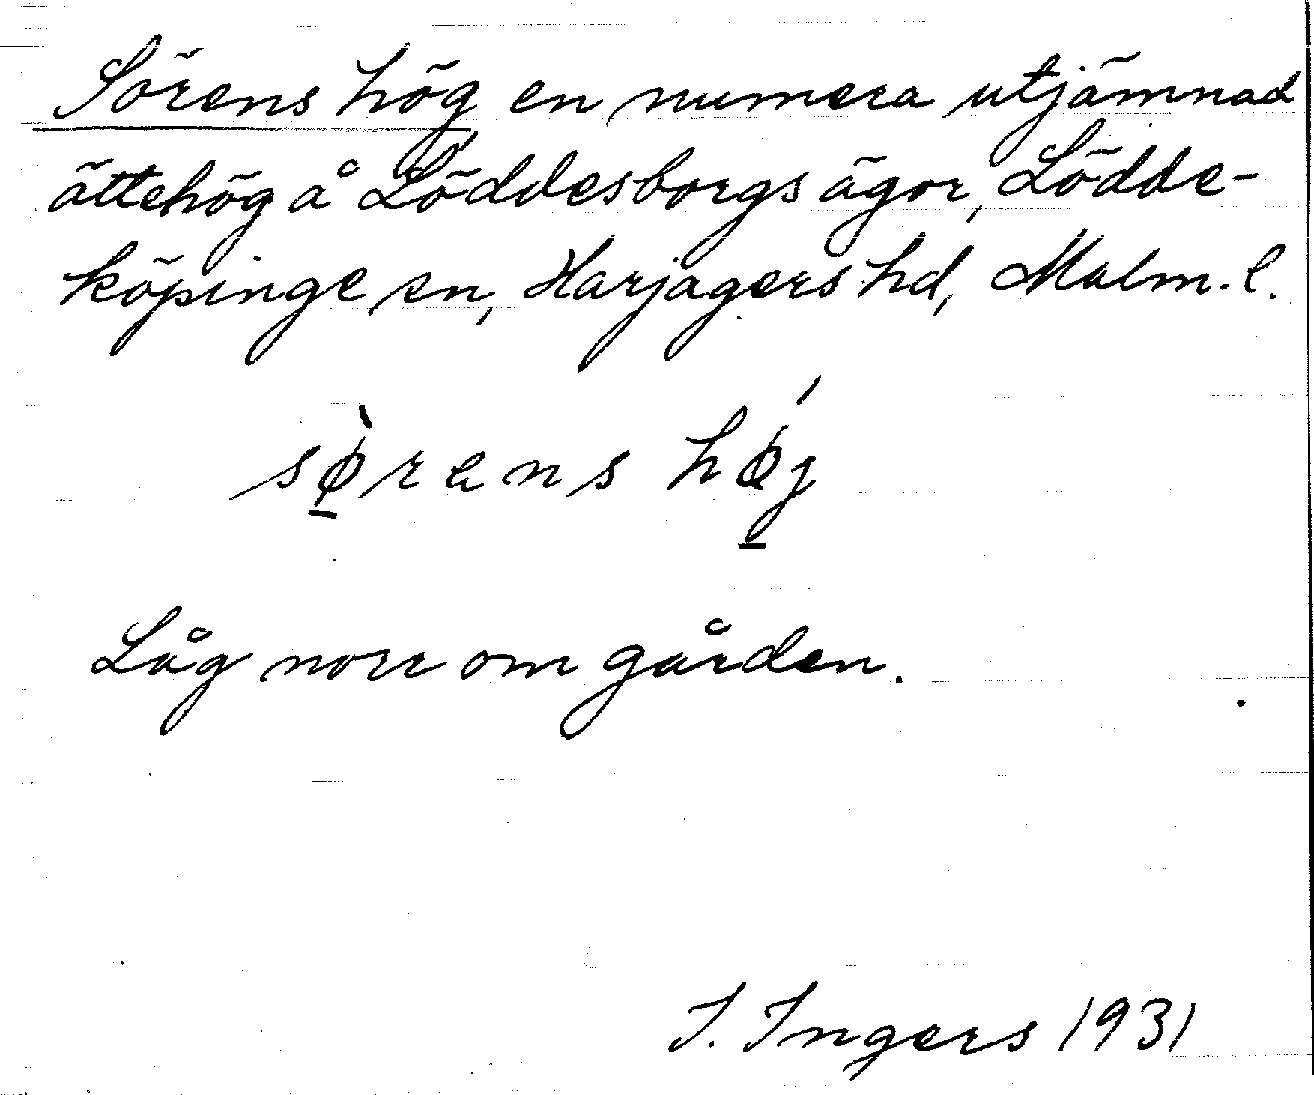 Sörens hög en numera utjämnad
ättehög å Löddesborgs ägor, Lödde-
köpinge sn, Harjagers hd, Malm. l.
sø̀rens hǿj
Låg norr om gården.
I. Ingers 1931